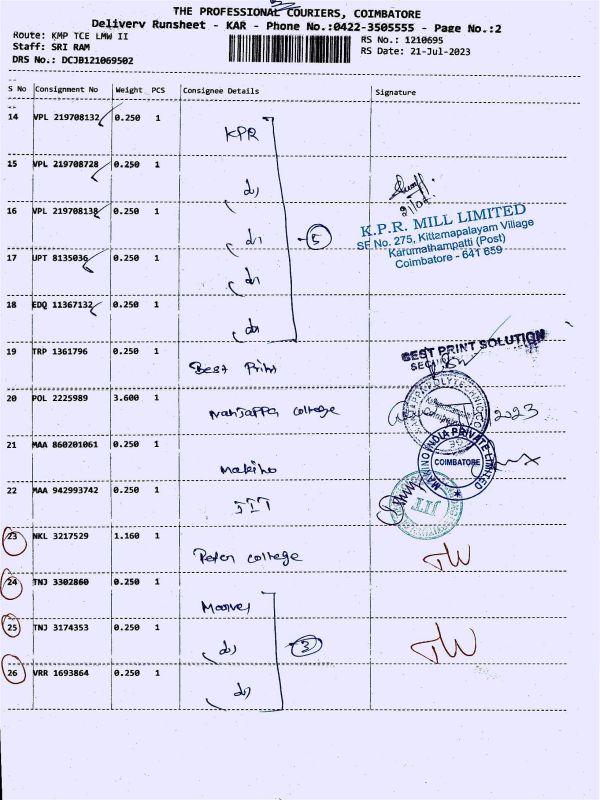 THE PROFESSIONAL COURIERS, COIMBATORE
Delivery Runsheet - KAR - Phone No.:0422-3505555 - Page No.:2
Route: KMP TCE LMW II
RS No.: 1210695
Staff: SRI RAM
RS Date: 21-Jul-2023
DRS No.: DCJB121069502
S No Consignment No Weight PCS Consignee Details Signature
14 VPL 219708132 0.250 1 KPR
15 VPL 219708728 0.250 1
16 VPL 219708138 0.250 1
5
K.P.R. MILL LIMITED
SF No. 275, Kittamapalayam Village
Karumathampatti (Post)
Coimbatore - 641 659
17 UPT 8135036 0.250 1
18 EDQ 11367132 0.250 1
19 TRP 1361796 0.250 1 Best Print
BEST PRINT SOLUTION
20 POL 2225989 3.600 1 college
2023
21 MAA 860201061 0.250 1 Makino
MAKINO INDIA PRIVATE LIMITED
COIMBATORE
22 MAA 942993742 0.250 1 JIT
JIT
23 NKL 3217529 1.160 1 college
TW
24 TNJ 3302860 0.250 1
25 TNJ 3174353 0.250 1
3
TW
26 VRR 1693864 0.250 1